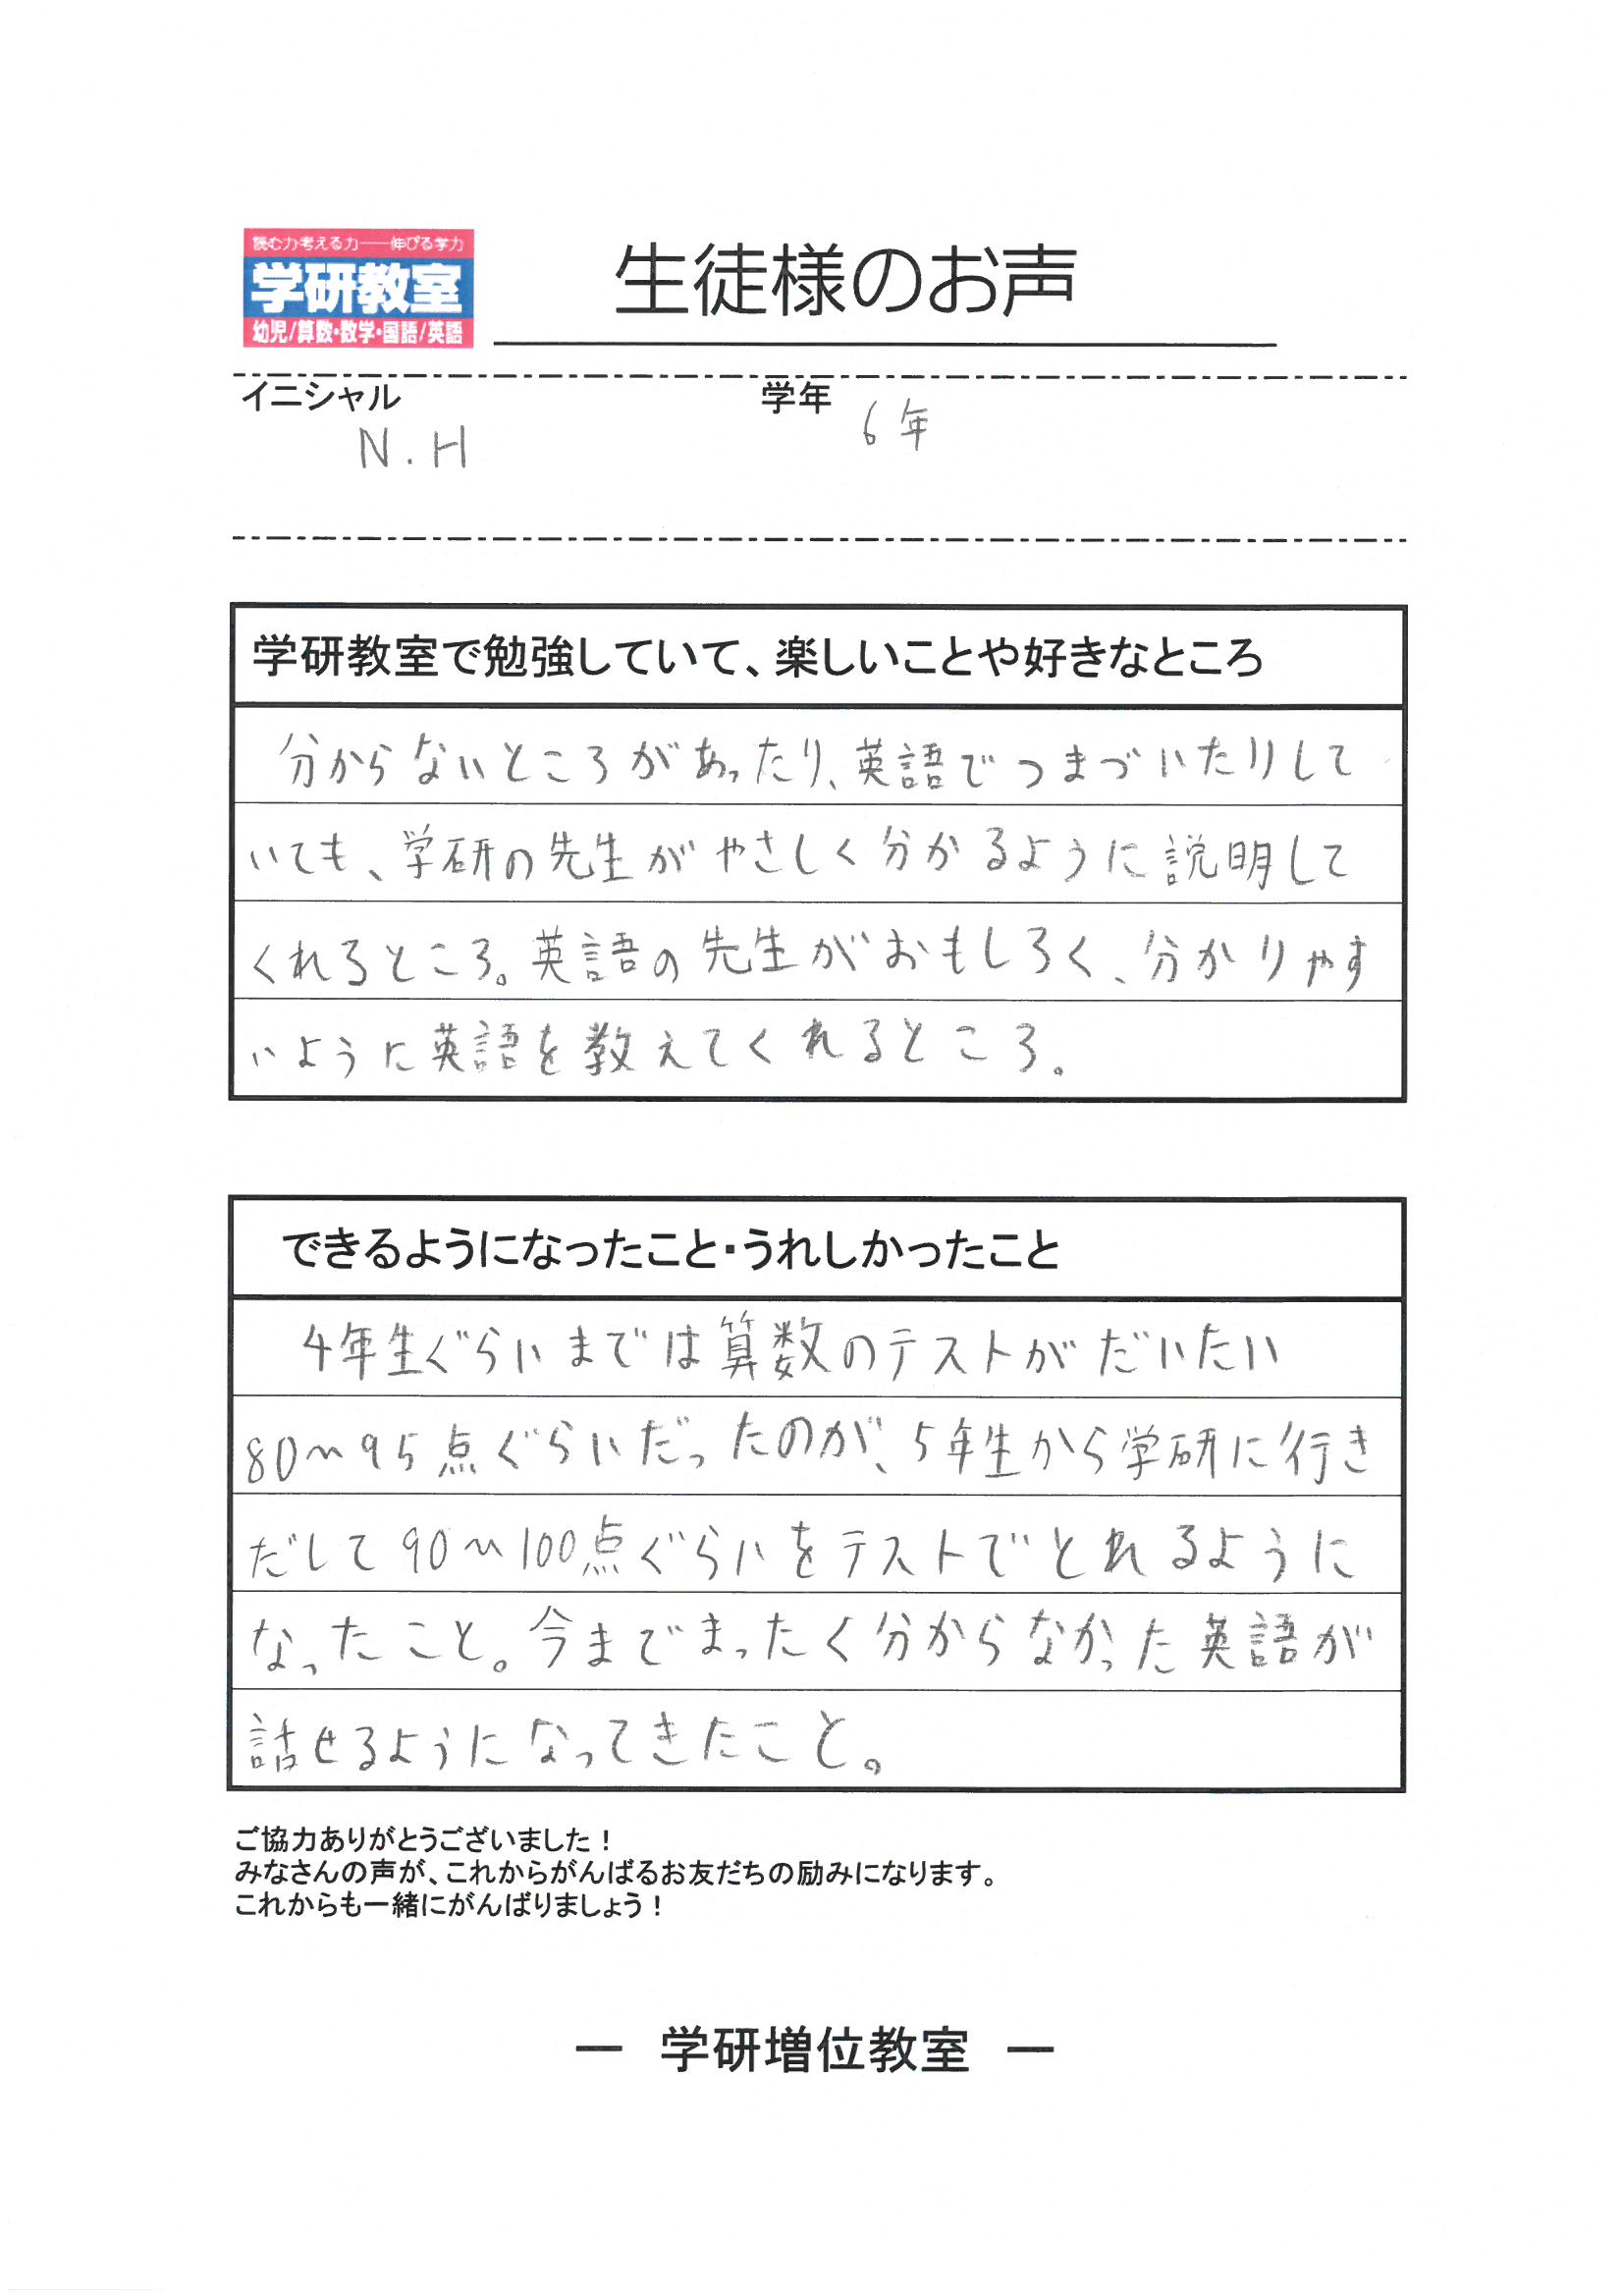 読む力考える力――伸びる学力
学研教室
幼児/算数・数学・国語/英語
生徒様のお声
イニシャル
N.H
学年
6年
学研教室で勉強していて、楽しいことや好きなところ
分からないところがあったり、英語でつまづいたりして
いても、学研の先生がやさしく分かるように説明して
くれるところ。英語の先生がおもしろく、分かりやす
いように英語を教えてくれるところ。
できるようになったこと・うれしかったこと
4年生ぐらいまでは算数のテストがだいたい
80〜95点ぐらいだったのが、5年生から学研に行き
だして90〜100点ぐらいをテストでとれるように
なったこと。今までまったく分からなかった英語が
話せるようになってきたこと。
ご協力ありがとうございました！
みなさんの声が、これからがんばるお友だちの励みになります。
これからも一緒にがんばりましょう！
― 学研増位教室 ―